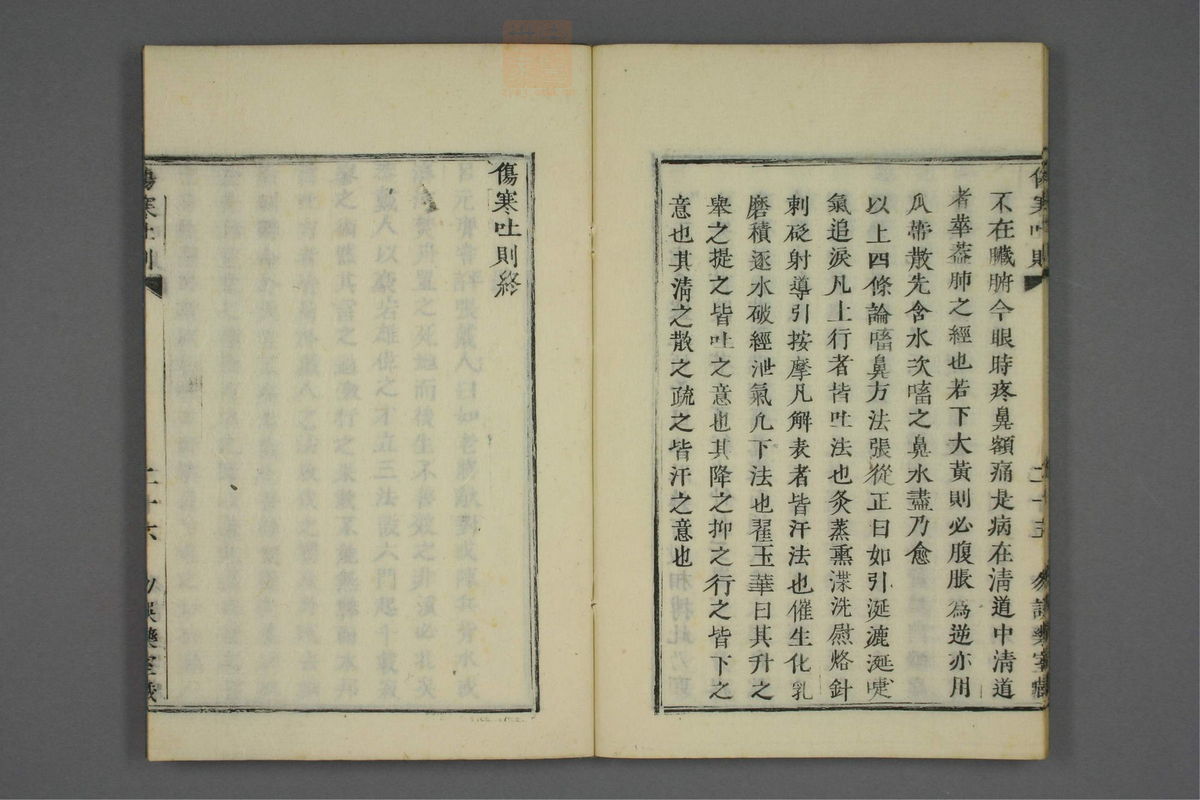 不在臟腑今眼時疼鼻額痛是病在淸道中淸道
者華葢肺之經也若下大黃則必腹脹為逆亦用
瓜蒂散先含水次㗜之鼻水盡乃愈
以上四條論㗜鼻方法張從正曰如引涎漉涎嚏
氣追淚凡上行者皆吐法也灸蒸熏渫洗慰烙針
刺砭射導引按摩凡解表者皆汗法也催生化乳
磨積逐水破經泄氣凡下法也翟玉華曰其升之
舉之提之皆吐之意也其降之抑之行之皆下之
意也其淸之散之疏之皆汗之意也
傷寒吐則
二十五
傷寒吐則終
傷寒吐則
二十六